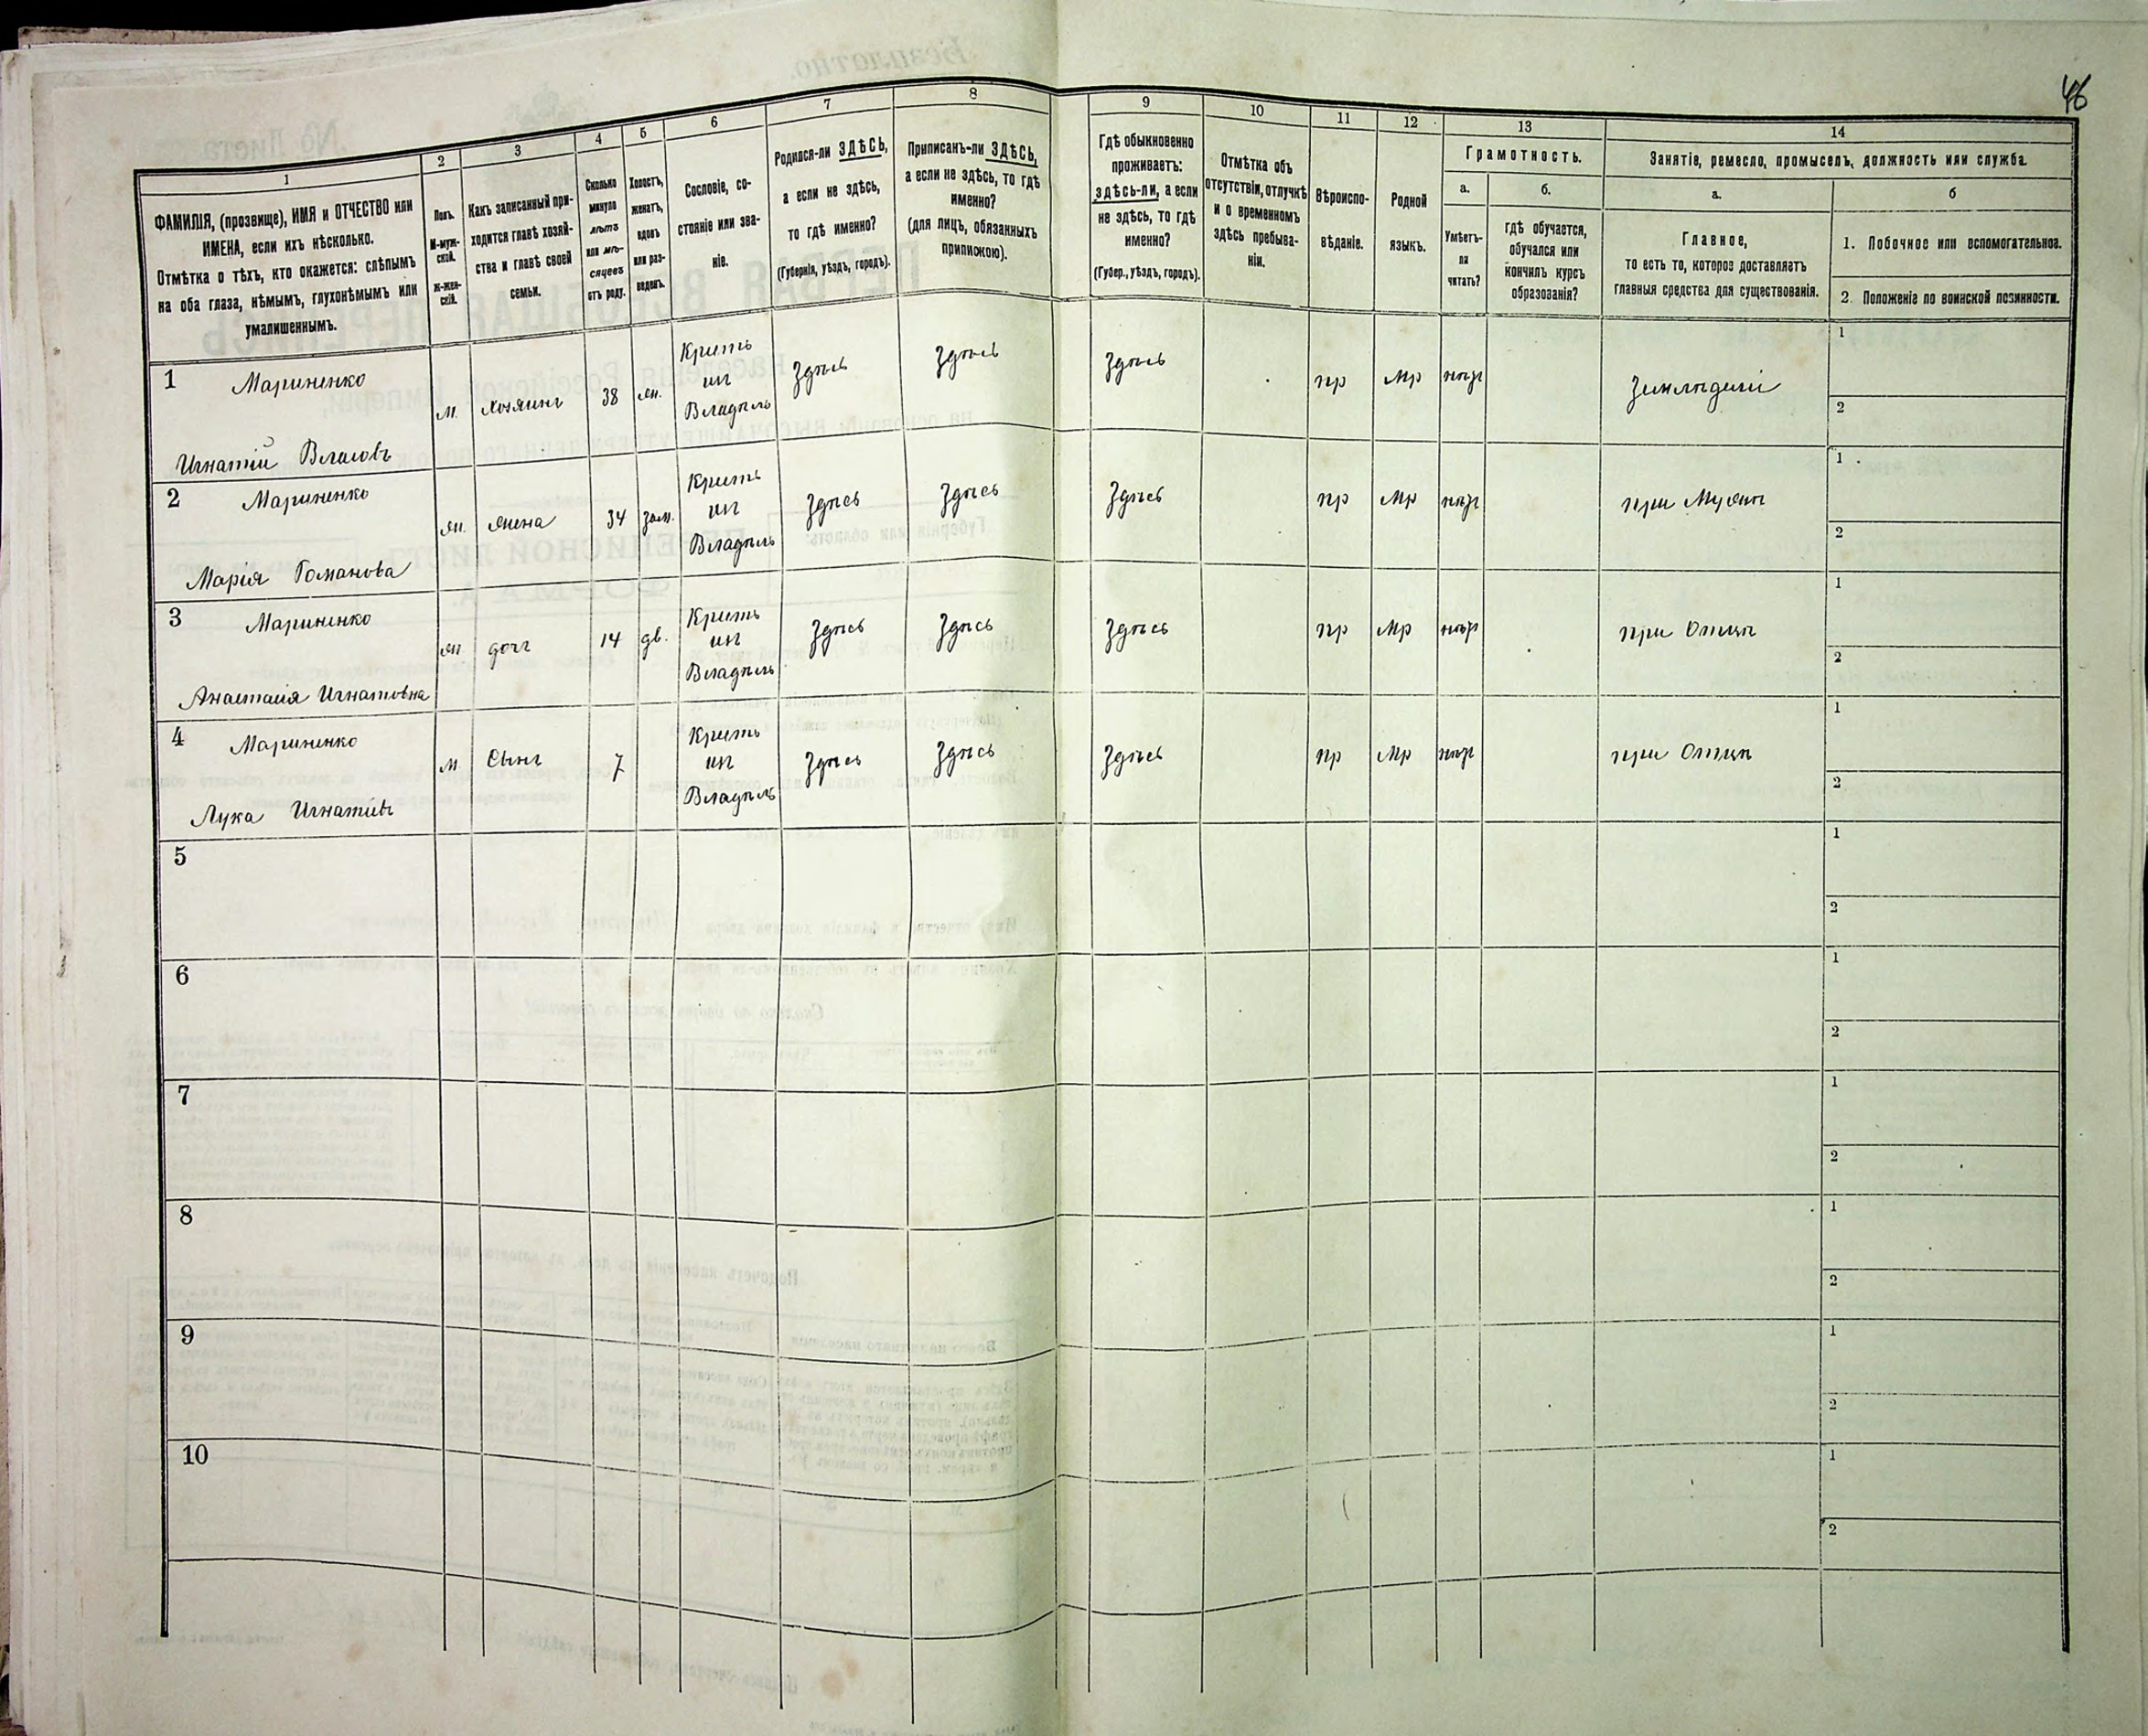 46
1
2
3
4
5
6
7
8
9
10
11
12
13
14
ФАМИЛІЯ, (прозвище), ИМЯ и ОТЧЕСТВО или
ИМЕНА, если ихъ нѣсколько.
Отмѣтка о тѣхъ, кто окажется: слѣпымъ
на оба глаза, нѣмымъ, глухонѣмымъ или
умалишеннымъ.
Полъ.
М-муж-
ской.
Ж-жен-
скій.
Какъ записанный при-
ходится главѣ хозяй-
ства и главѣ своей
семьи.
Сколько
минуло
лѣтъ
или мѣ-
сяцевъ
отъ роду.
Холостъ,
женатъ,
вдовъ
или раз-
веденъ.
Сословіе, со-
стояніе или зва-
ніе.
Родился-ли ЗДѢСЬ,
а если не здѣсь,
то гдѣ именно?
(Губернія, уѣздъ, городъ).
Приписанъ-ли ЗДѢСЬ,
а если не здѣсь, то гдѣ
именно?
(для лицъ, обязанныхъ
припискою).
Гдѣ обыкновенно
проживаетъ:
здѣсь-ли, а если
не здѣсь, то гдѣ
именно?
(Губер., уѣздъ, городъ).
Отмѣтка объ
отсутствіи, отлучкѣ
и о временномъ
здѣсь пребыва-
ніи.
Вѣроиспо-
вѣданіе.
Родной
языкъ.
Грамотность.
а.
Умѣетъ-
ли
читать?
б.
гдѣ обучается,
обучался или
кончилъ курсъ
образованія?
Занятіе, ремесло, промыселъ, должность или служба.
а.
Главное,
то есть то, которое доставляетъ
главныя средства для существованія.
б
1. Побочное или вспомогательное.
2. Положеніе по воинской повинности.
1 Мариненко
Игнатій Власовъ
м. хозяинъ 38 жн.
Крить
изъ
Владѣль
Здѣсь Здѣсь Здѣсь пр Мр нѣтъ Земледѣліе
1
2
2 Мариненко
Марія Романова
жн. жена 34 зам.
Крить
изъ
Владѣль
Здѣсь Здѣсь Здѣсь пр Мр нѣтъ при Мужѣ
1
2
3 Мариненко
Анастасія Игнатовна
жн дочь 14 дв.
Крить
изъ
Владѣль
Здѣсь Здѣсь Здѣсь пр Мр нѣтъ при Отцѣ
1
2
4 Мариненко
Лука Игнатіевъ
м Сынъ 7
Крить
изъ
Владѣль
Здѣсь Здѣсь Здѣсь пр Мр нѣтъ при Отцѣ
1
2
5
1
2
6
1
2
7
1
2
8
1
2
9
1
2
10
1
2